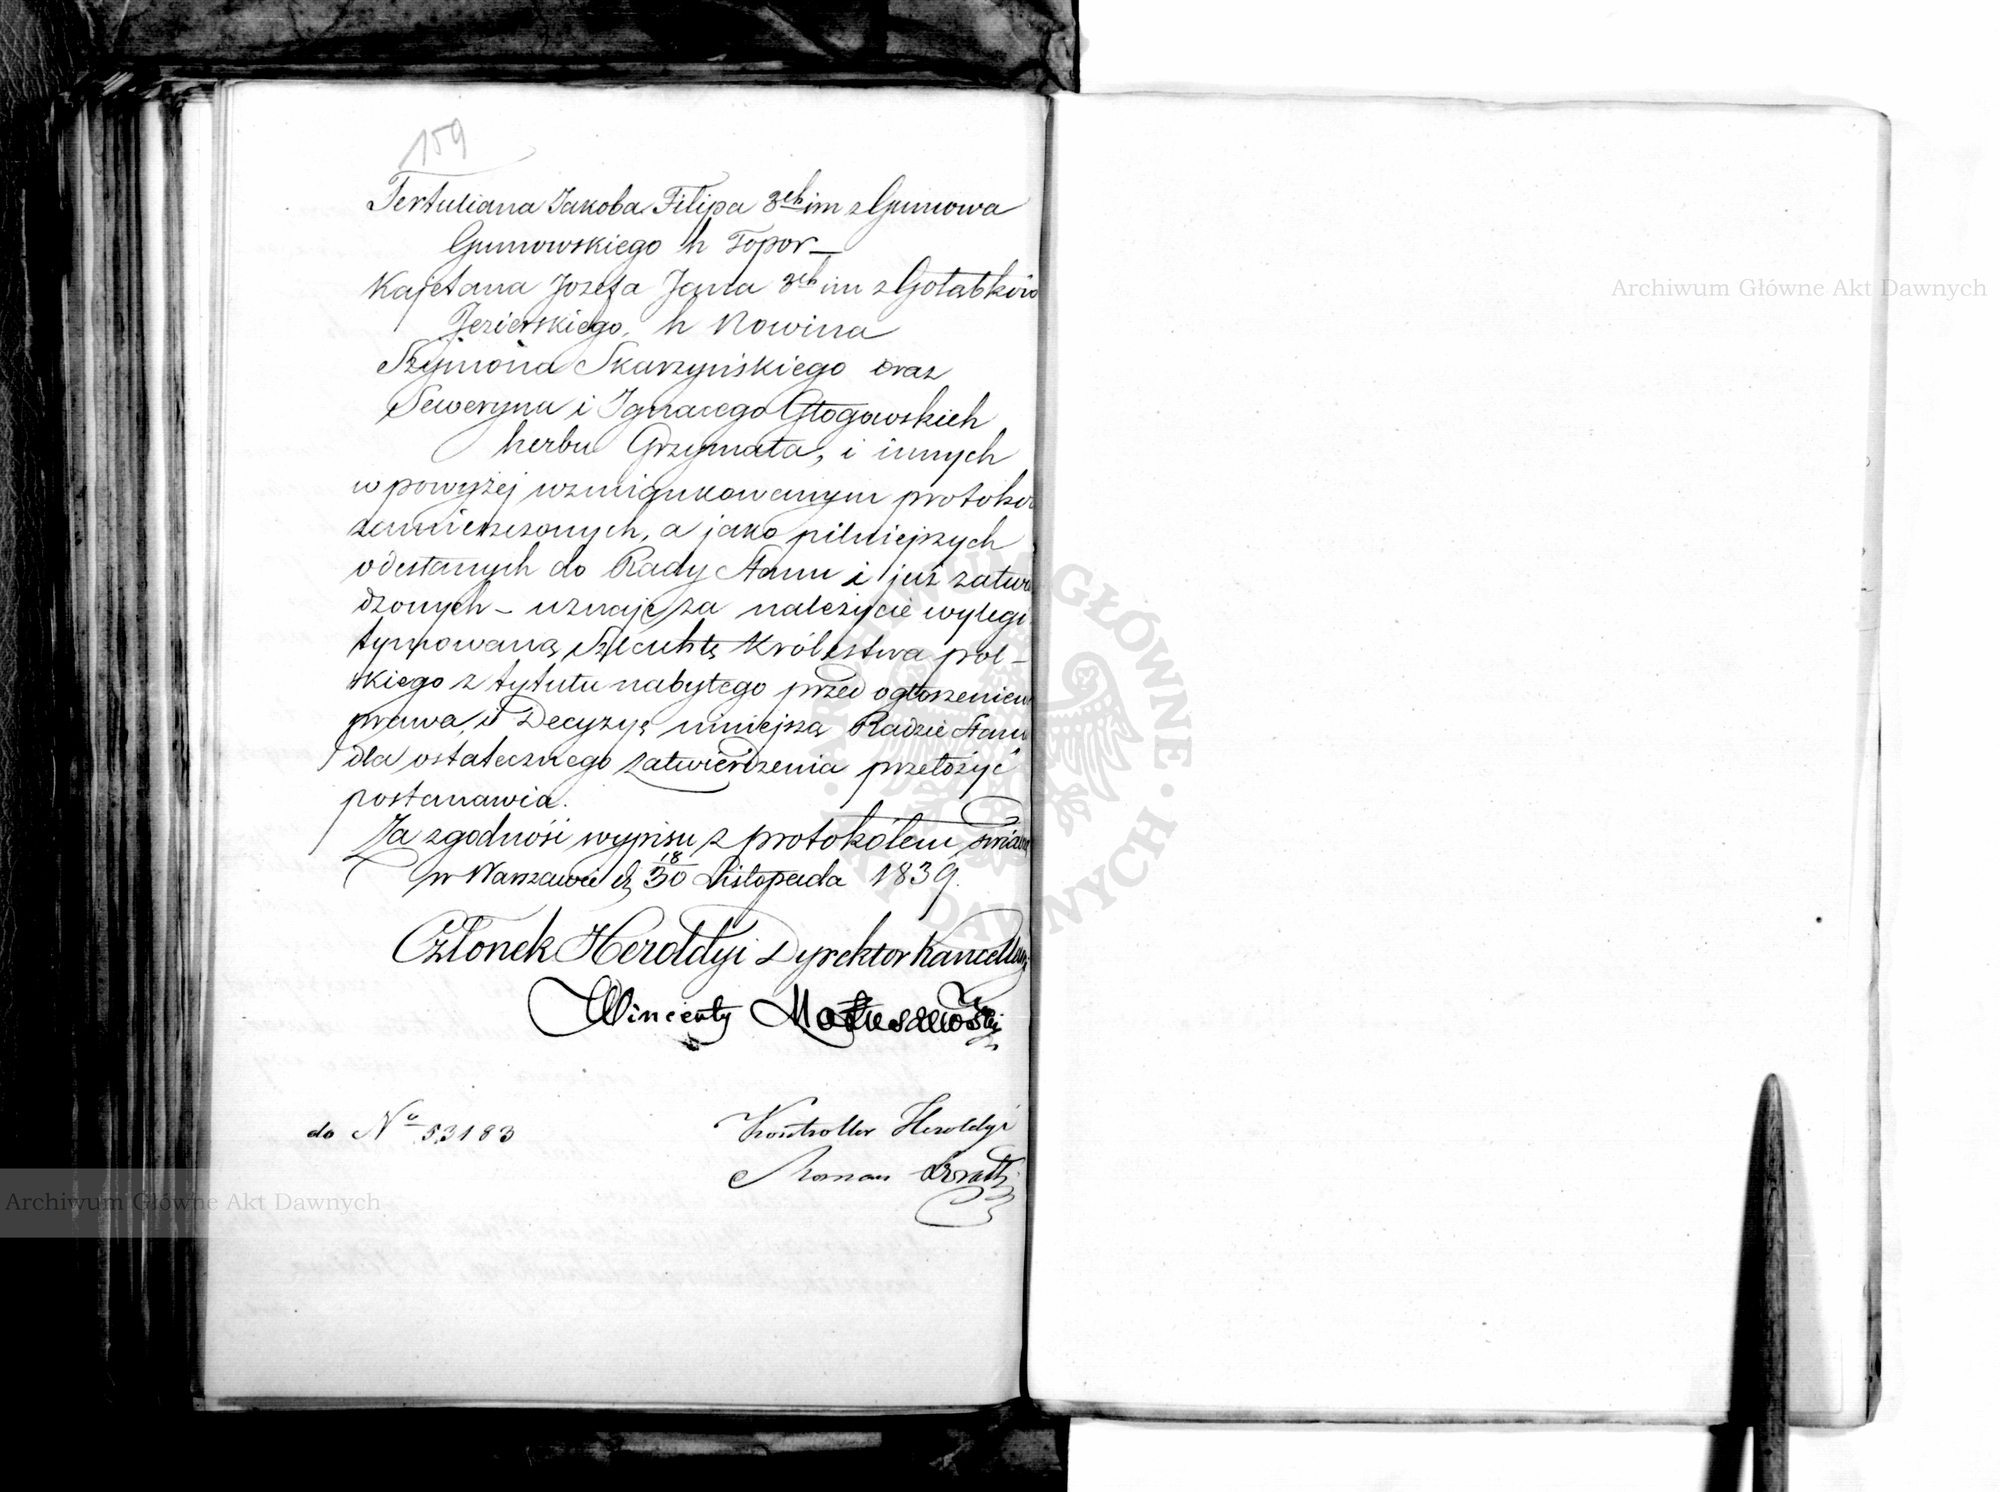 159
Tertuliana Jakoba Filipa 3ch im z Gumowa
Gumowskiego h Topor _
Kajetana Jozefa Jana 3ch im z Gołąbków
Jezierskiego, h Nowina
Szymona Skarzyńskiego oraz
Seweryna i Ignacego Głogowskich
herbu Grzymała, i innych
w powyżej wzmiankowanym protokó
zamieszczonych, a jako pilniejszych
odesłanych do Rady Stanu i już zatwier
dzonych – uznaje za należycie wylegi
tymowaną Szlachtę Królestwa pol –
skiego z tytułu nabytego przed ogłoszeniem
prawa, i Decyzyę niniejszą Radzie Stanu
dla ostatecznego zatwierdzenia przełożyć
postanawia.
Za zgodność wypisu z protokółem
w Warszawie d. 18/30 Listopada 1839.
Członek Heroldyi Dyrektor Kancellaryi
Wincenty Matuszewski
do No 53183
Kontroller Heroldyi
Roman
Archiwum Główne Akt Dawnych
Archiwum Główne Akt Dawnych
ARCHIWUM GŁÓWNE · AKT DAWNYCH ·